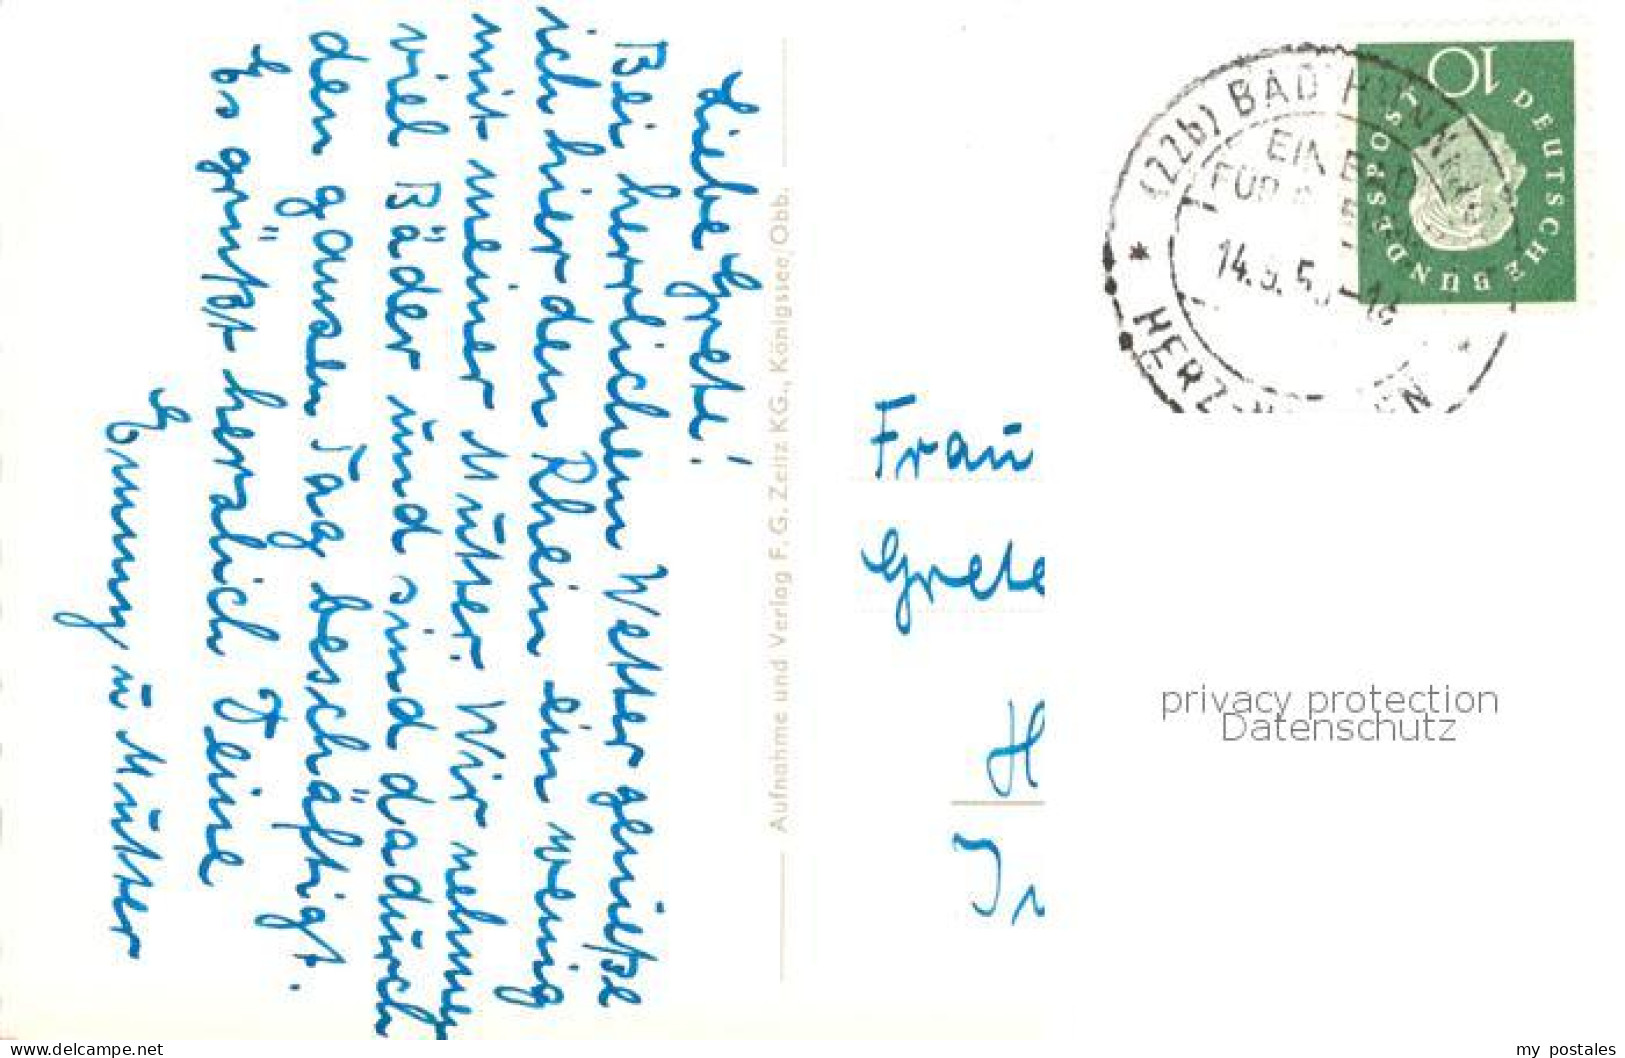 Liebe Grete!
Bei herrlichem Wetter genieße
ich hier den Rhein ein wenig
mit meiner Mutter. Wir nehmen
viel Bäder und sind dadurch
den ganzen Tag beschäftigt.
Es grüßt herzlich Deine
Emmy u Mutter
Aufnahme und Verlag F. G. Zeitz KG., Königssee/Obb.
(22b) BAD HÖNNINGEN
EIN BAD
FÜR
14.9.5 -16
HERZ-
10
DEUTSCHE BUNDESPOST
Frau
Grete
H
privacy protection
Datenschutz
www.delcampe.net
my_postales